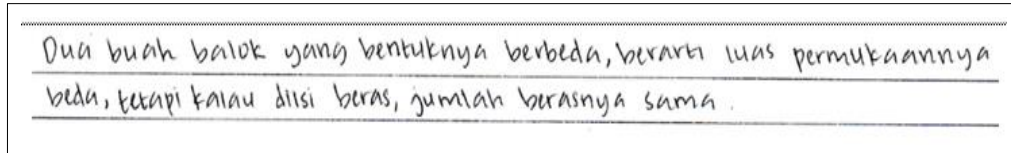 Dua buah balok yang bentuknya berbeda, berarti luas permukaannya
beda, tetapi kalau diisi beras, jumlah berasnya sama.